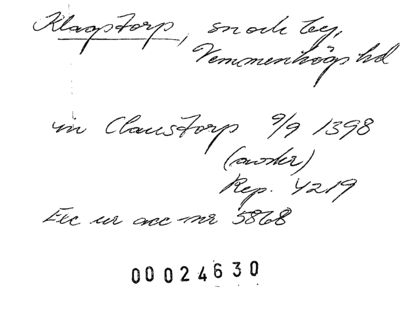 Klagstorp, sn och by,
Vemmenhögs hd
in Clanstorp 9/9 1398
(avskr)
Rep. 4219
Exc ur acc-nr 5868
00024630